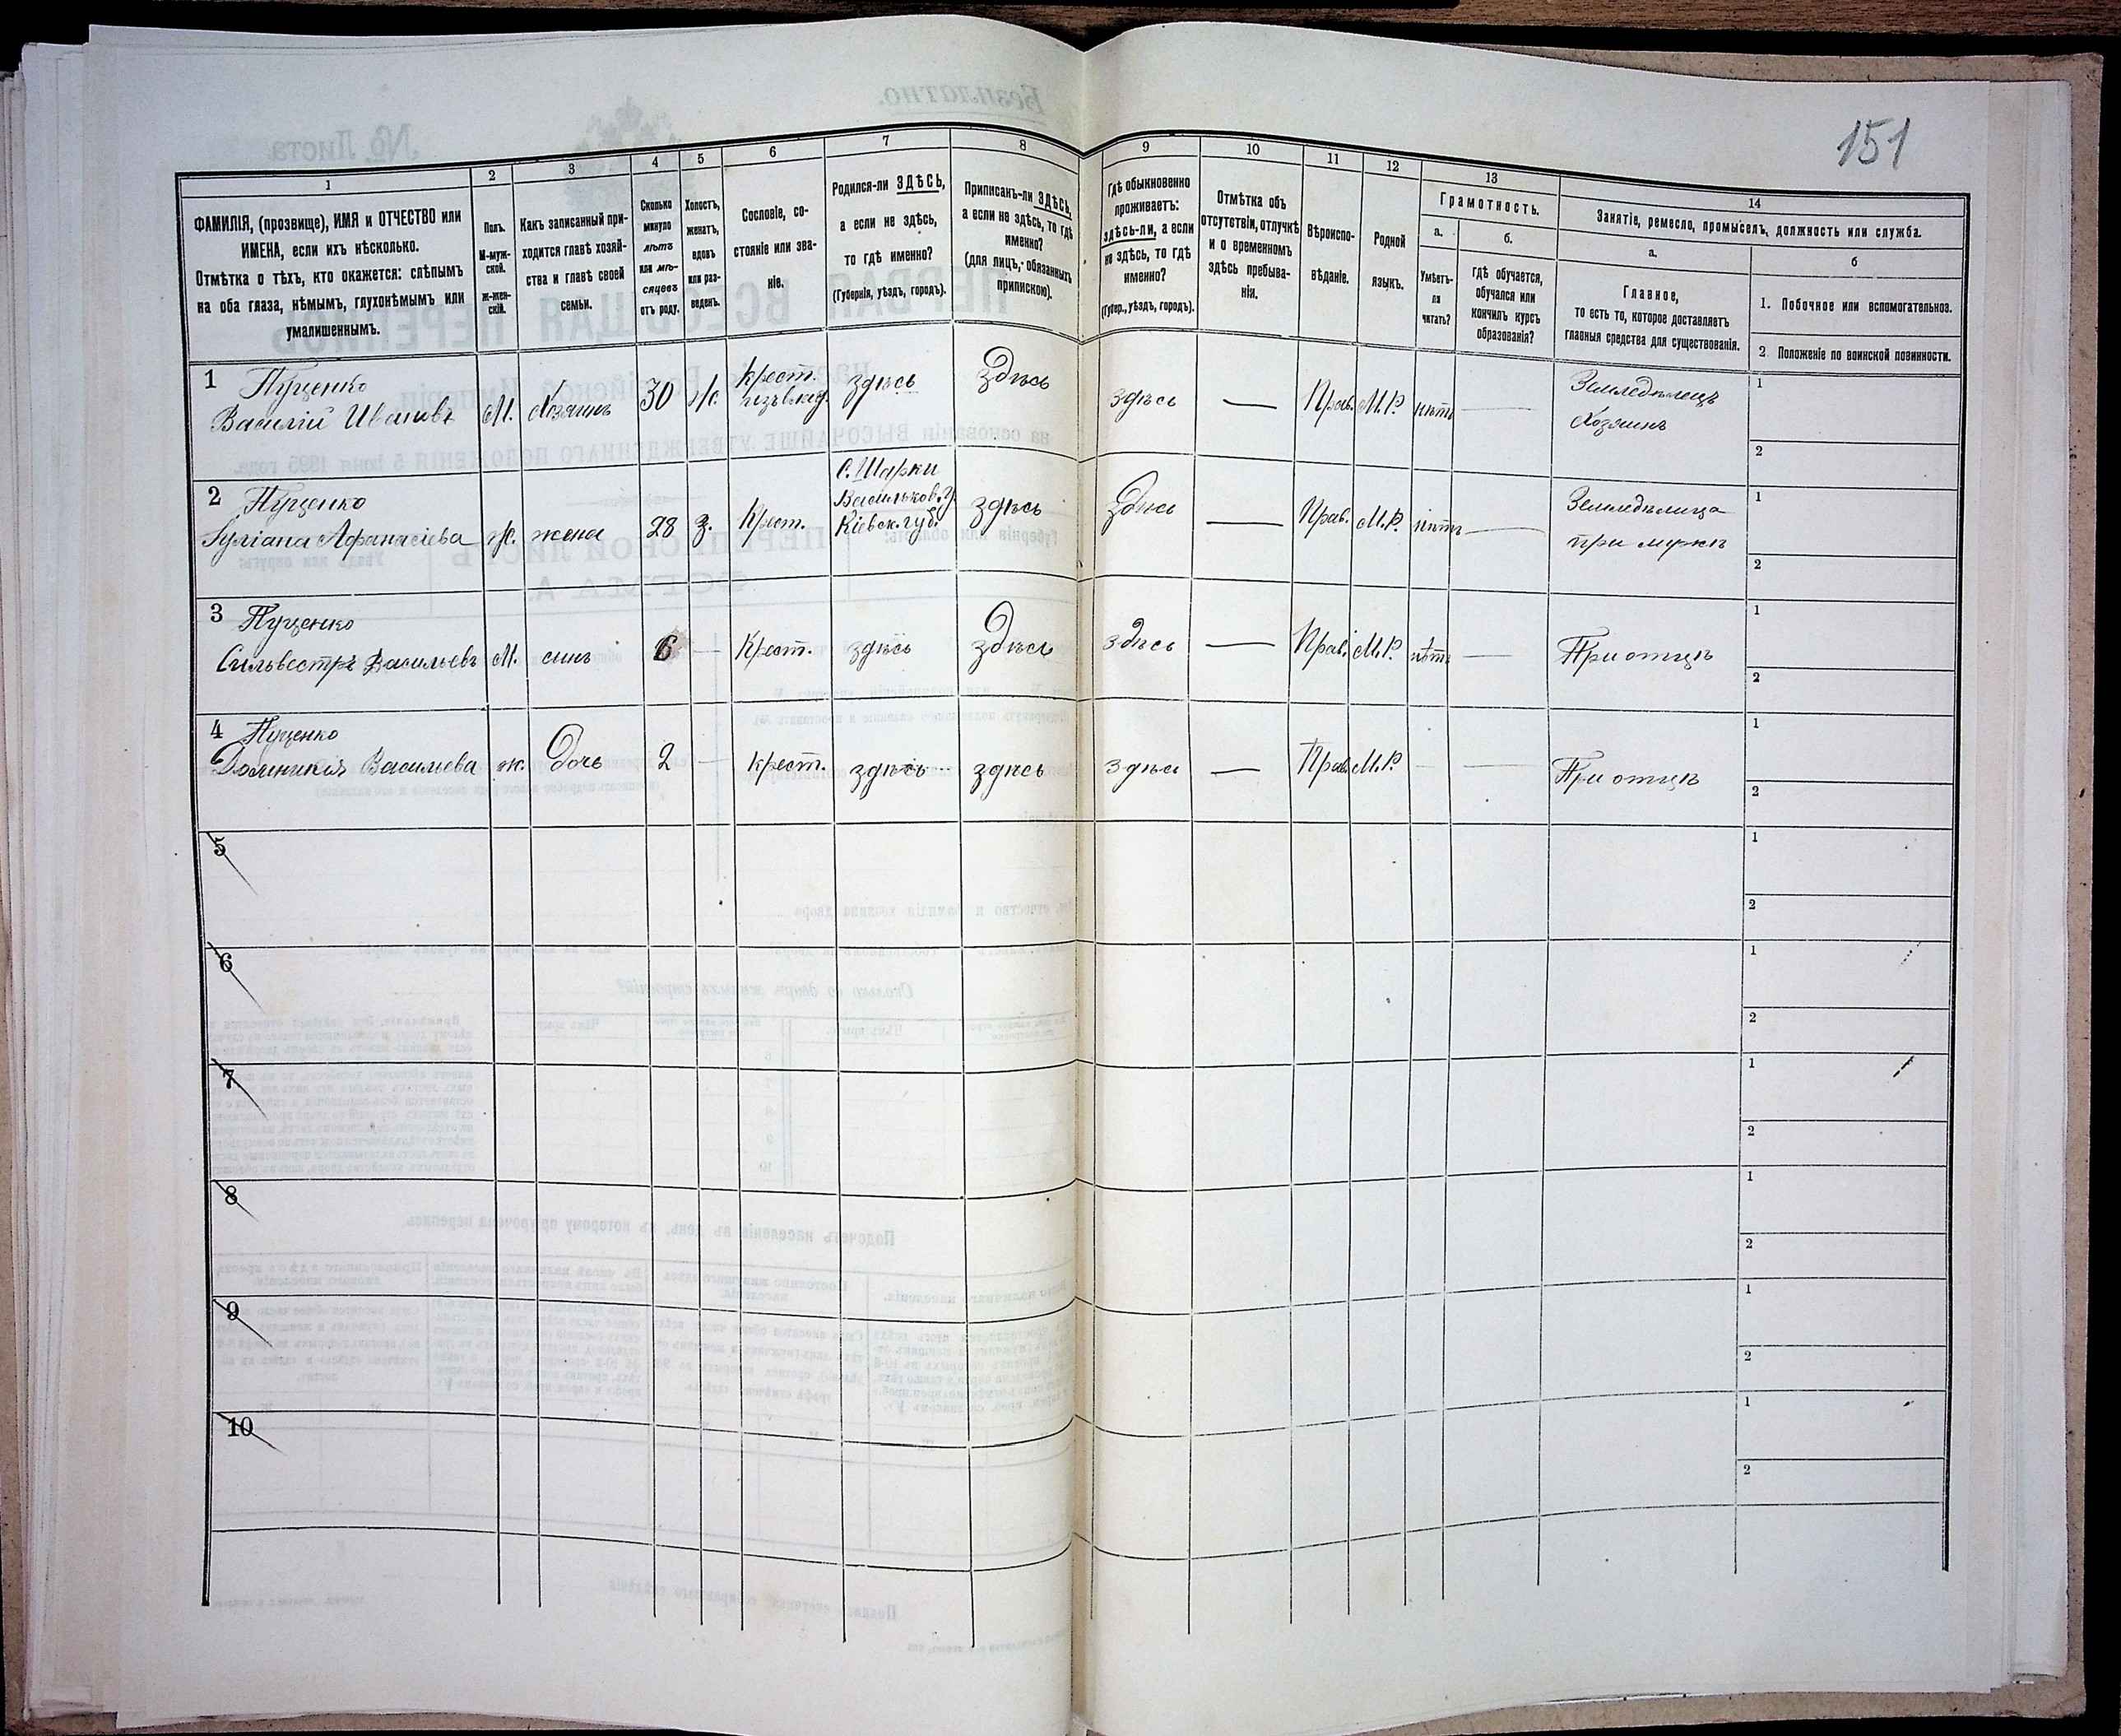 151
1
2
3
4
5
6
7
8
9
10
11
12
13
14
ФАМИЛІЯ, (прозвище), ИМЯ и ОТЧЕСТВО или
ИМЕНА, если ихъ нѣсколько.
Отмѣтка о тѣхъ, кто окажется: слѣпымъ
на оба глаза, нѣмымъ, глухонѣмымъ или
умалишеннымъ.
Полъ.
М-муж-
ской.
Ж-жен-
скій.
Какъ записанный при-
ходится главѣ хозяй-
ства и главѣ своей
семьи.
Сколько
минуло
лѣтъ
или мѣ-
сяцевъ
отъ роду.
Холостъ,
женатъ,
вдовъ
или раз-
веденъ.
Сословіе, со-
стояніе или зва-
ніе.
Родился-ли ЗДѢСЬ,
а если не здѣсь,
то гдѣ именно?
(Губернія, уѣздъ, городъ).
Приписанъ-ли ЗДѢСЬ,
а если не здѣсь, то гдѣ
именно?
(для лицъ, обязанныхъ
припискою).
Гдѣ обыкновенно
проживаетъ:
здѣсь-ли, а если
не здѣсь, то гдѣ
именно?
(Губер., уѣздъ, городъ).
Отмѣтка объ
отсутствіи, отлучкѣ
и о временномъ
здѣсь пребыва-
ніи.
Вѣроиспо-
вѣданіе.
Родной
языкъ.
Грамотность.
а.
Умѣетъ-
ли
читать?
б.
гдѣ обучается,
обучался или
кончилъ курсъ
образованія?
Занятіе, ремесло, промыселъ, должность или служба.
а.
Главное,
то есть то, которое доставляетъ
главныя средства для существованія.
б
1. Побочное или вспомогательное.
2. Положеніе по воинской повинности.
1 Пуценко
Василій Ивановъ М. Хозяинъ 30 ж. крест. здѣсь здѣсь здѣсь — Прав. М.Р. нѣтъ — Земледѣлецъ
Хозяинъ
1
2
2 Пуценко
Афанасіева ж. жена 28 з. Крест. С. Шарки
Васильков. у.
Кіевск. губ. здѣсь здѣсь — Прав. М.Р. нѣтъ — Земледѣлица
при мужѣ
1
2
3 Пуценко
Сильвестръ Васильевъ М. синъ 6 — Крест. здѣсь здѣсь здѣсь — Прав. М.Р. нѣтъ — При отцѣ
1
2
4 Пуценко
Домникія Василиева ж. дочь 2 — крест. здѣсь здѣсь здѣсь — Прав. М.Р. — — При отцѣ
1
2
5
1
2
6
1
2
7
1
2
8
1
2
9
1
2
10
1
2